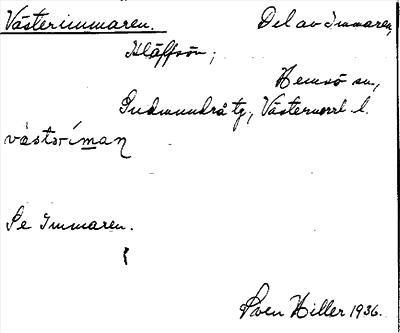 Västerimmaren. Del av Immaren,
Kläffsön;
Hemsö sn,
Gudmundrå tg, Västernorrl. l.
västərìman
Se Immaren.
Sven Hiller 1936.